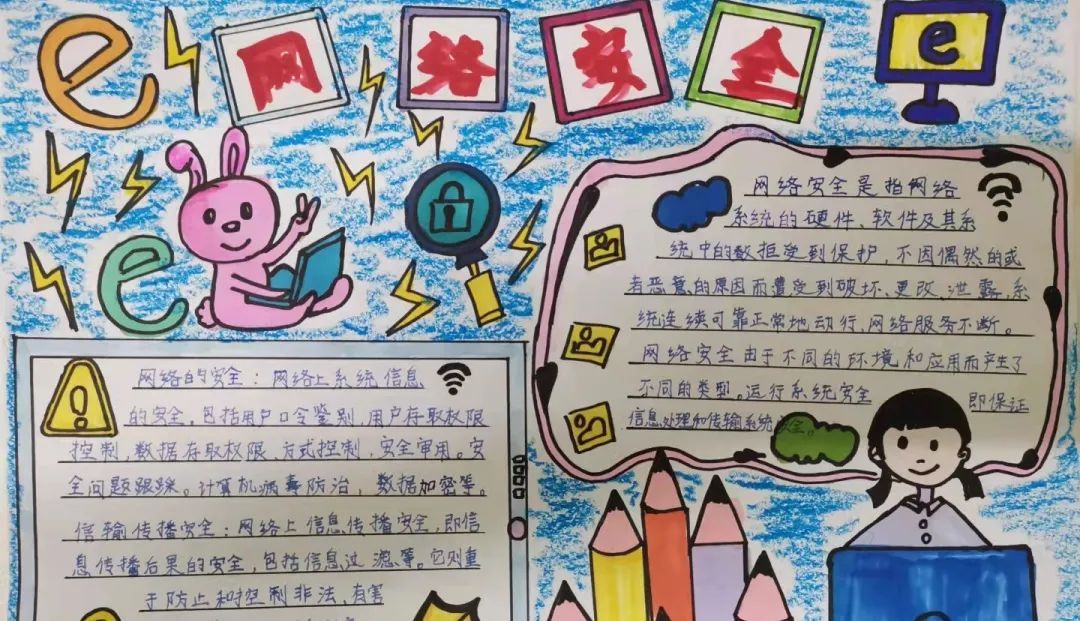 e 网络安全 e
e
网络安全是指网络
系统的硬件、软件及其系
统中的数拒受到保护,不因偶然的或
者恶意的原因而遭受到破坏、更改、泄露,系
统连续可靠正常地动行,网络服务不断。
网络安全由于不同的环境和应用而产生了
不同的类型。运行系统安全 即保证
信息处理和传输系统
网络的安全:网络上系统信息
的安全。包括用户口令鉴别,用户存取权限
控制,数据存取权限、方式控制,安全审用。安
全问题跟踩。计算机病毒防治,数据加密等。
信输传播安全:网络上信息传播安全,即信
息传播后果的安全,包括信息过滤等。它则重
于防止和控制非法、有害